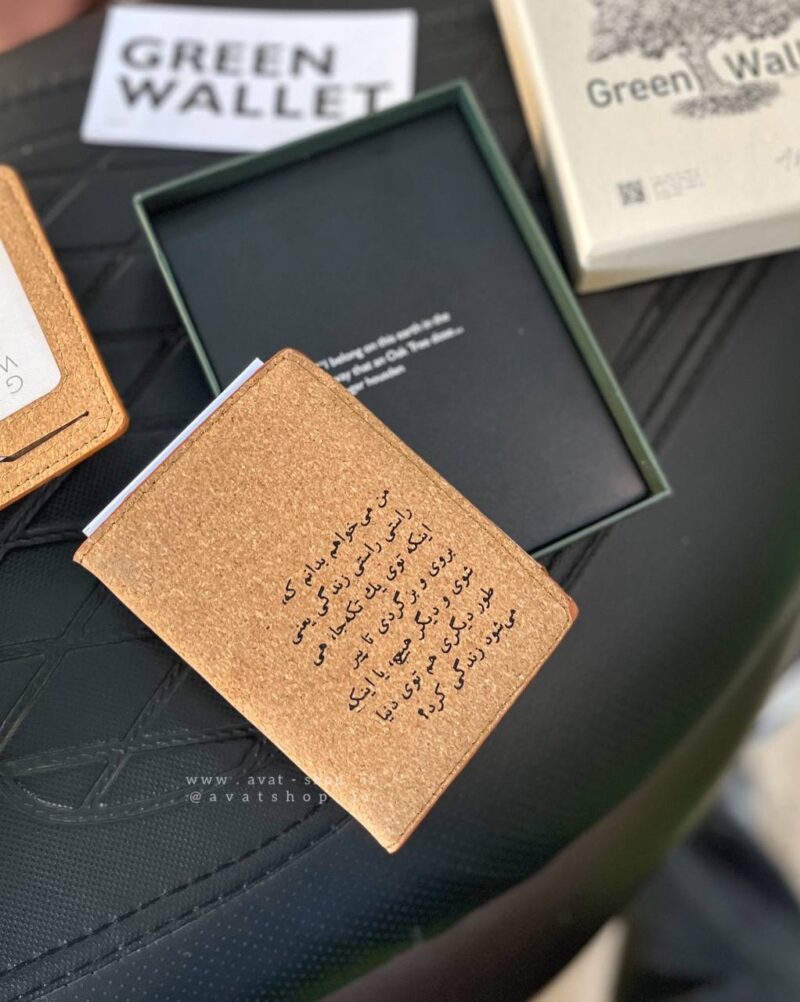 GREEN
WALLET
Green Wall
belong on this earth in the
that an Oak Tree does...
من می‌خواهم بدانم که،
راستی راستی زندگی یعنی
اینکه توی یك تکه‌جا، هی
بروی و برگردی تا پیر
شوی و دیگر هیچ، یا اینکه
طور دیگری هم توی دنیا
می‌شود زندگی کرد؟
www.avat-shop
@avatshop